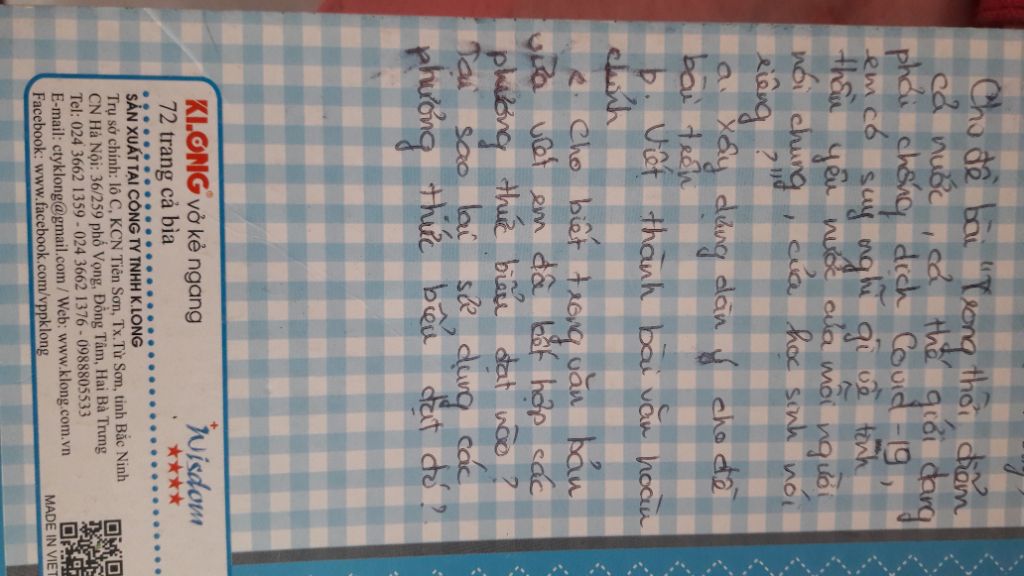 Cho đề bài "Trong thời điểm
cả nước, cả thế giới đang
phải chống dịch Covid-19,
em có suy nghĩ gì về tinh
thần yêu nước của mỗi người
nói chung, của học sinh nói
riêng?"
a. Xây dựng dàn ý cho đề
bài trên
b. Viết thành bài văn hoàn
chỉnh
c. Cho biết trong văn bản
vừa viết em đã kết hợp các
phương thức biểu đạt nào?
Tại sao lại sử dụng các
phương thức biểu đạt đó?
KLONG® vở kẻ ngang
72 trang cả bìa
Wisdom
SẢN XUẤT TẠI CÔNG TY TNHH K.LONG
Trụ sở chính: lô C, KCN Tiên Sơn, Tx.Từ Sơn, tỉnh Bắc Ninh
CN Hà Nội: 36/259 phố Vọng, Đồng Tâm, Hai Bà Trưng
Tel: 024 3662 1359 - 024 3662 1376 - 0988805533
E-mail: ctyklong@gmail.com / Web: www.klong.com.vn
Facebook: www.facebook.com/vppklong
MADE IN VIET